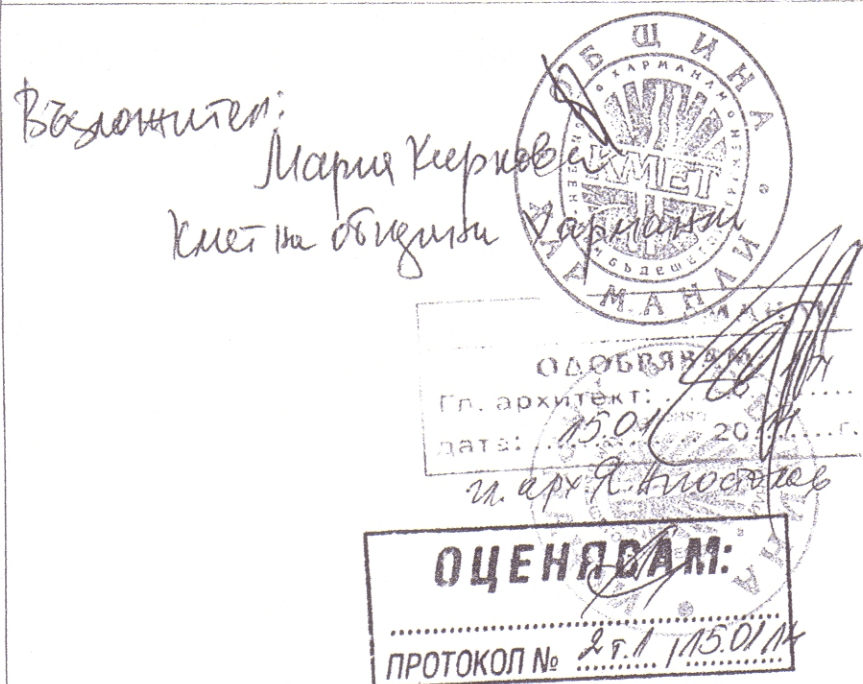 Възложител:
Мария Киркова
Кмет на община Харманли
ОБЩИНА
ХАРМАНЛИ
КМЕТ
ОДОБРЯВАМ:
Гл. архитект:
дата: 15.01 2014 г.
гл. арх. Я.
ОЦЕНЯВАМ:
ПРОТОКОЛ № 2 т.1 / 15.01.14